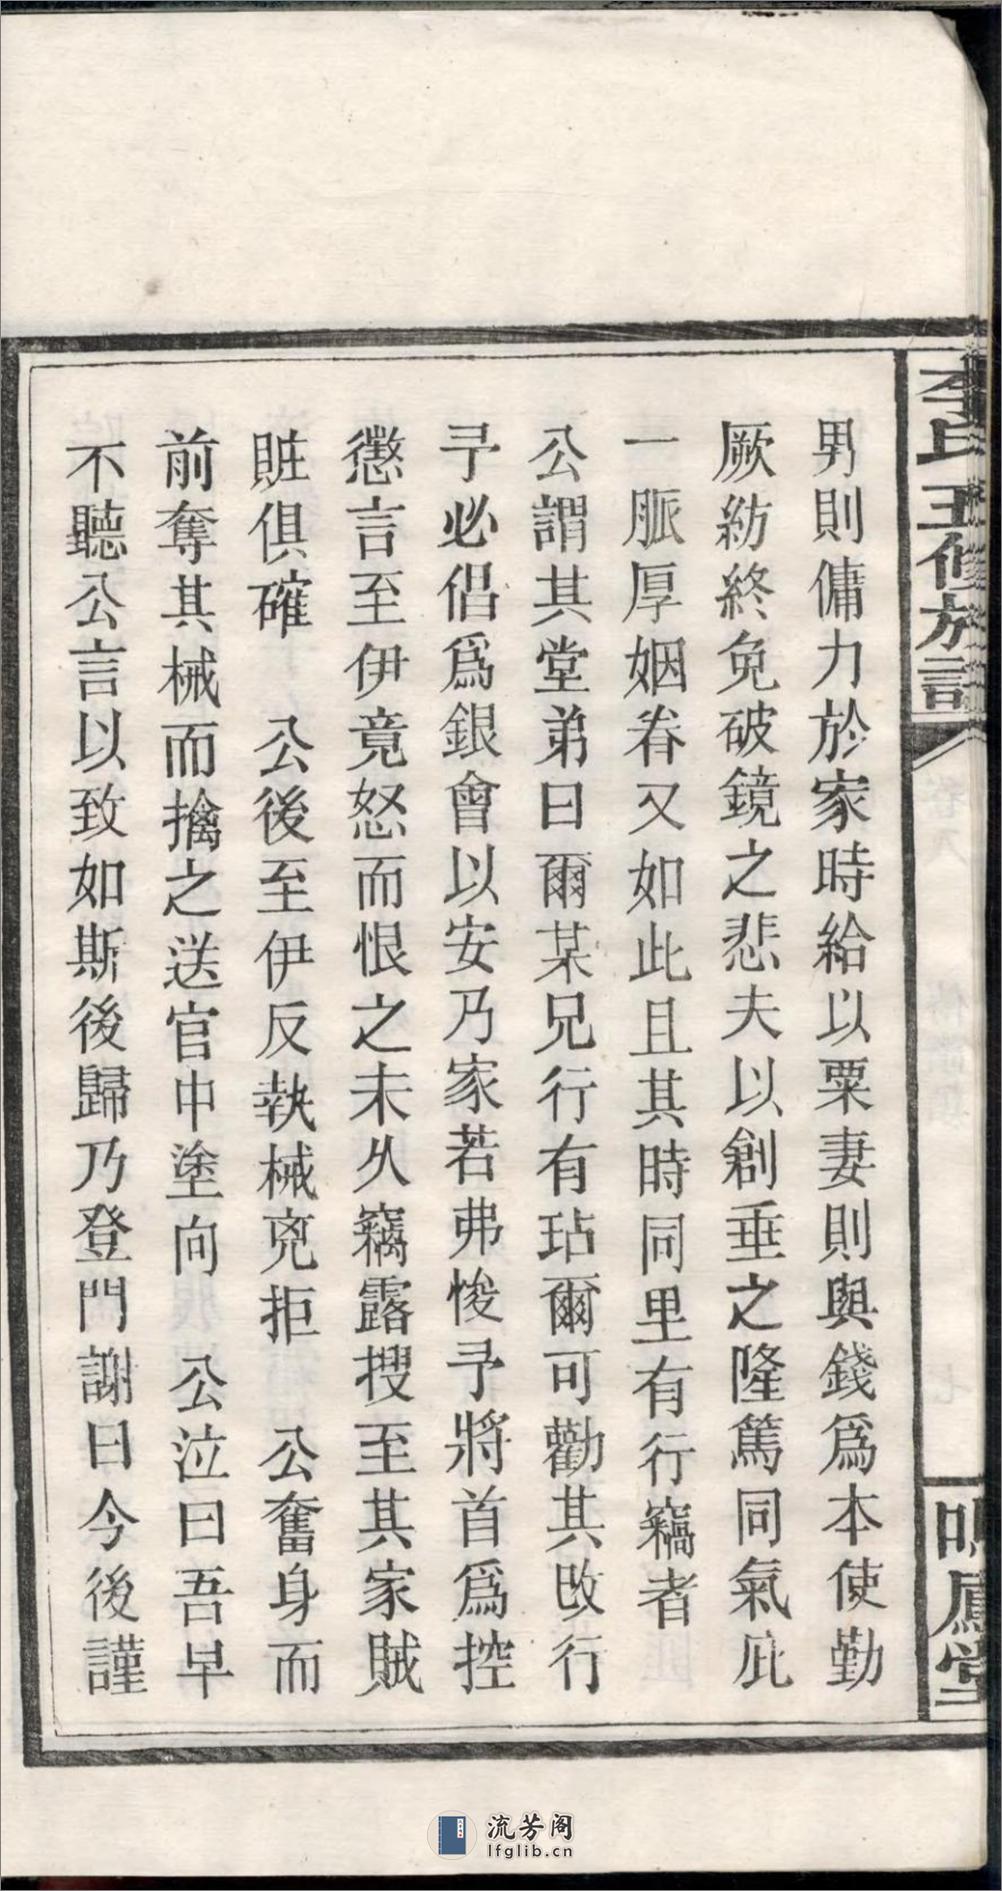 李氏五修族譜
鳴鳳堂
男則傭力於家時給以粟妻則與錢爲本使勤
厥紡終免破鏡之悲夫以創垂之隆篤同氣庇
一脈厚姻眷又如此且其時同里有行竊者
公謂其堂弟曰爾某兄行有玷爾可勸其改行
予必倡爲銀會以安乃家若弗悛予將首爲控
懲言至伊竟怒而恨之未久竊露搜至其家賊
賍俱確　公後至伊反執械兇拒　公奮身而
前奪其械而擒之送官中塗向　公泣曰吾早
不聽公言以致如斯後歸乃登門謝曰今後謹
流芳阁
lfglib.cn